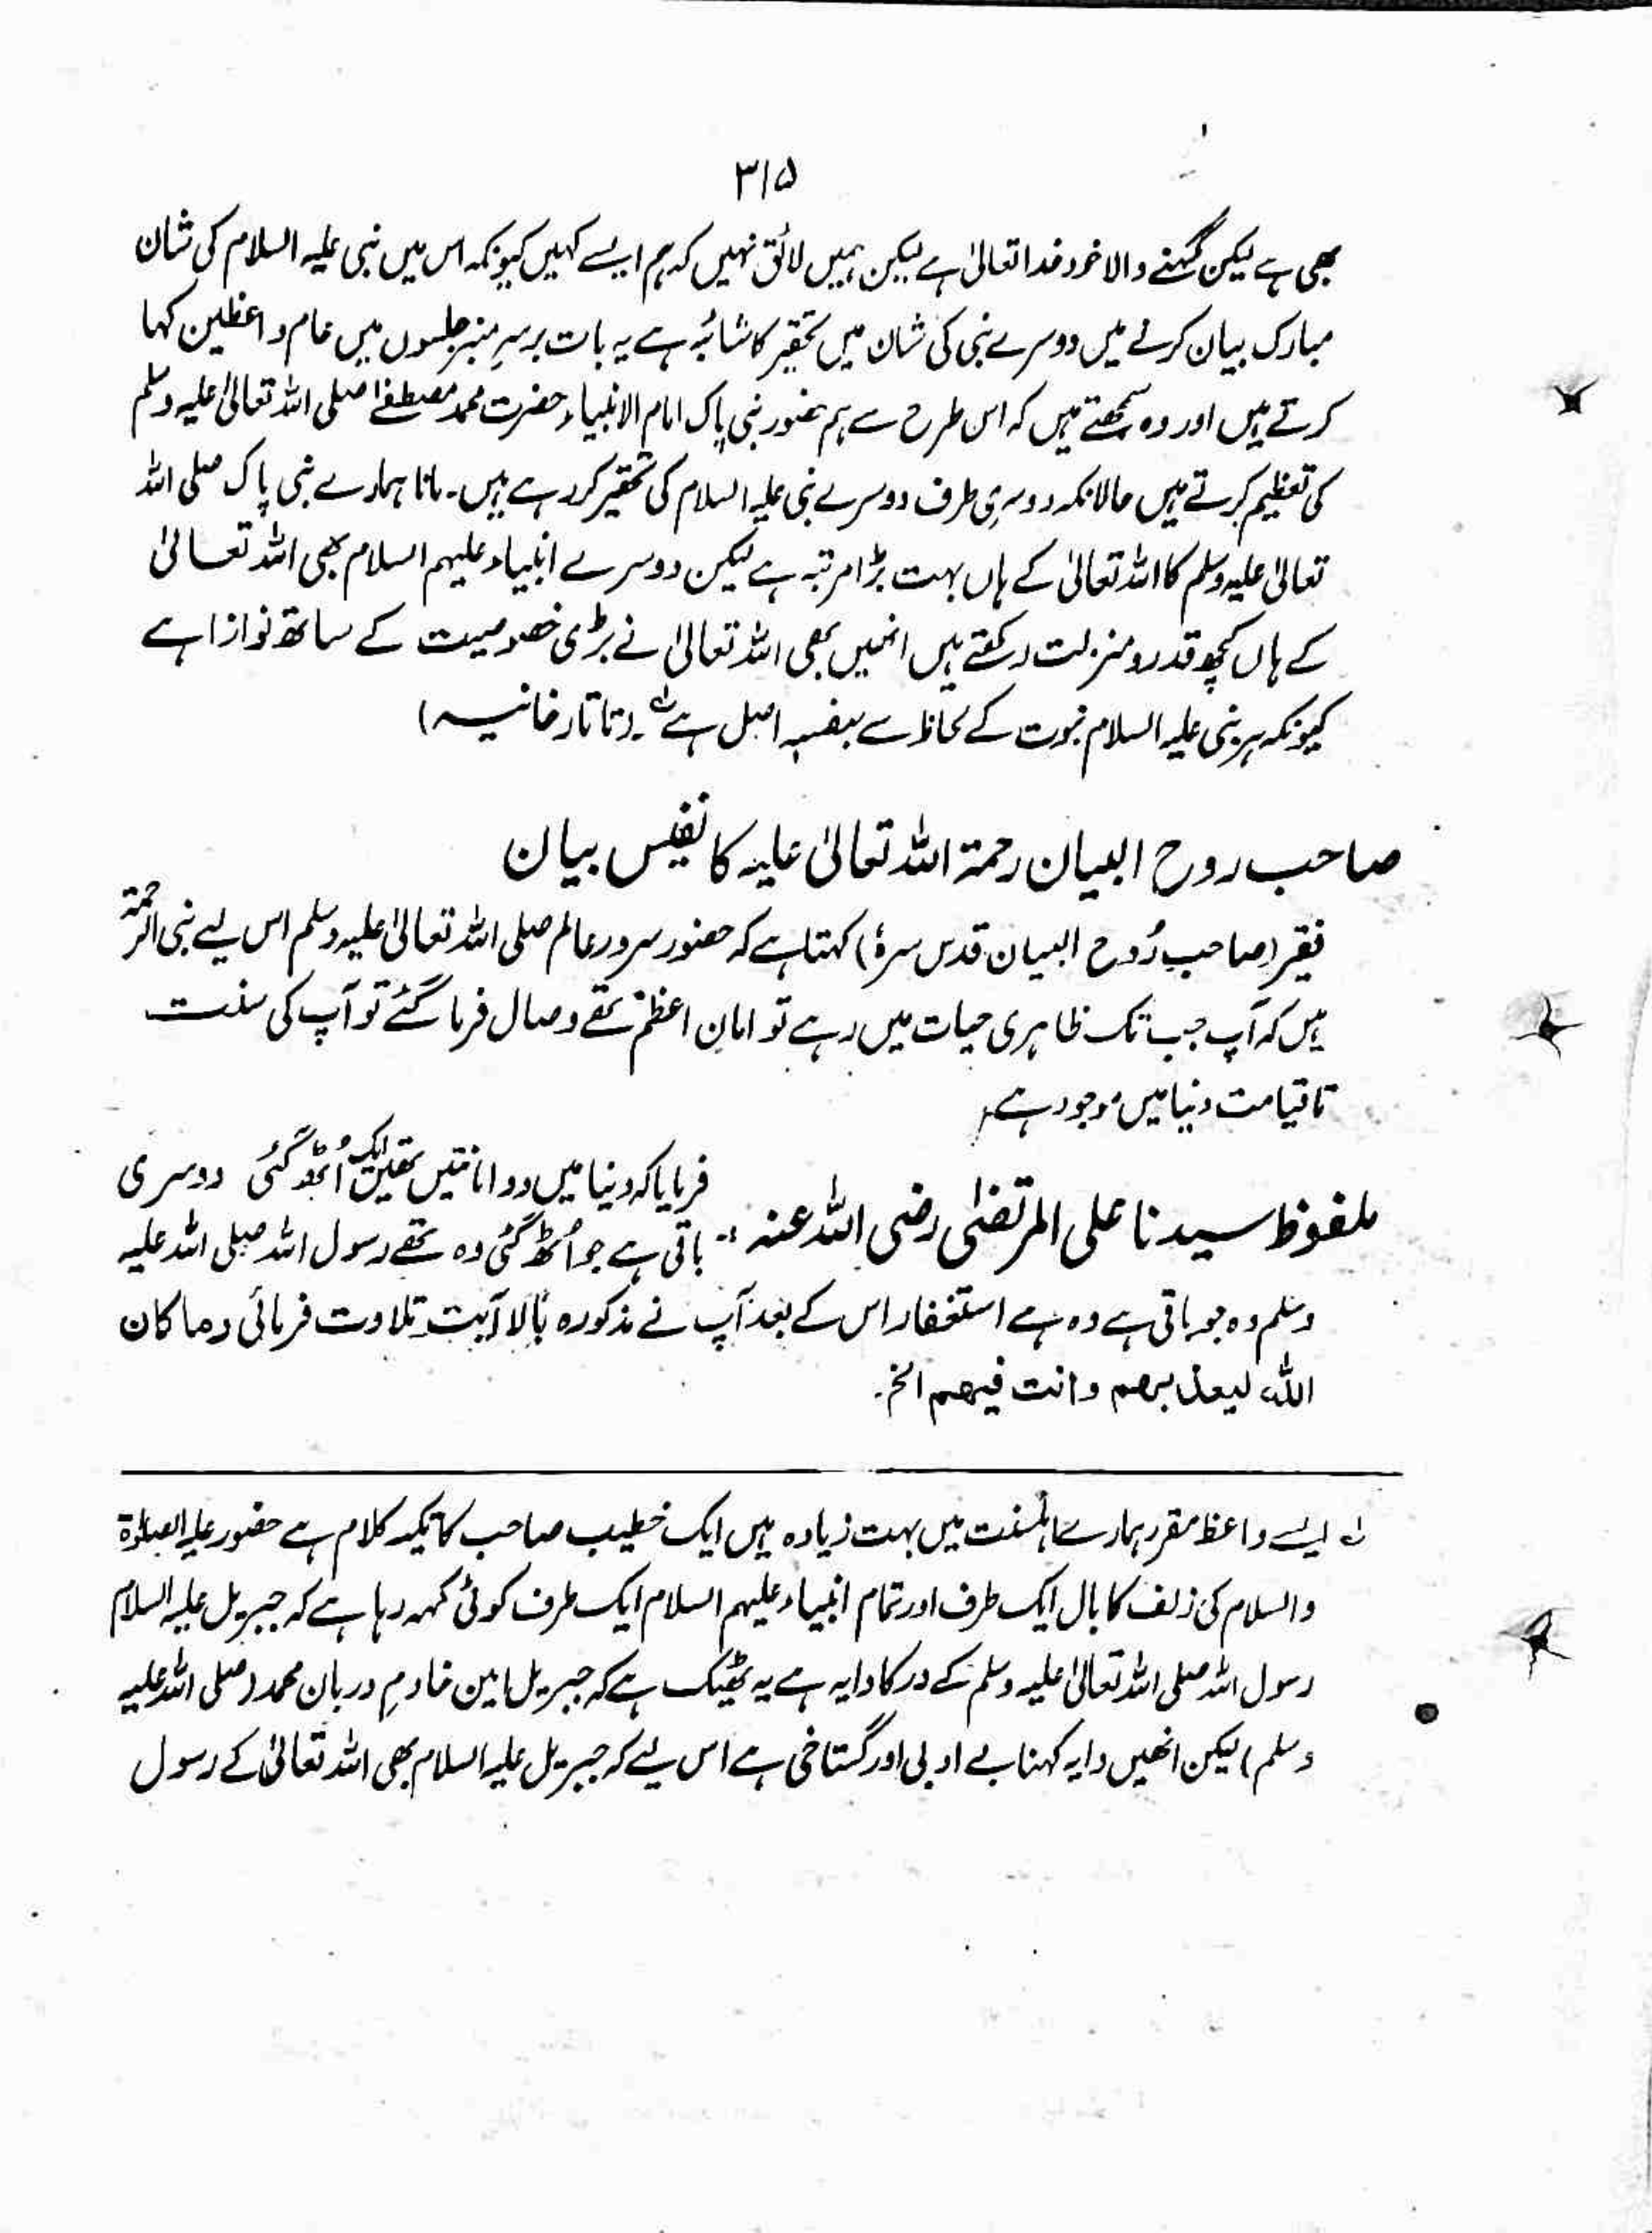 ۳۱۵
بھی ہے لیکن کہنے والا خود خدا تعالیٰ ہے لیکن ہمیں لائق نہیں کہ ہم ایسے کہیں کیونکہ اس میں نبی علیہ السلام کی شان
مبارک بیان کرنے میں دوسرے نبی کی شان میں تحقیر کا شائبہ ہے یہ بات برسرِ منبر جلسوں میں عام واعظین کہا
کرتے ہیں اور وہ سمجھتے ہیں کہ اس طرح سے ہم حضور نبی پاک امام الانبیاء حضرت محمد مصطفےٰ صلی اللہ تعالیٰ علیہ وسلم
کی تعظیم کرتے ہیں حالانکہ دوسری طرف دوسرے نبی علیہ السلام کی تحقیر کر رہے ہیں۔ مانا ہمارے نبی پاک صلی اللہ
تعالیٰ علیہ وسلم کا اللہ تعالیٰ کے ہاں بہت بڑا مرتبہ ہے لیکن دوسرے انبیاء علیہم السلام بھی اللہ تعالیٰ
کے ہاں کچھ قدر و منزلت رکھتے ہیں انہیں بھی اللہ تعالیٰ نے بڑی خصوصیت کے ساتھ نوازا ہے
کیونکہ ہر نبی علیہ السلام نبوت کے لحاظ سے بنفسہٖ اصل ہے لہ (تاتارخانیہ)
صاحب روح البیان رحمۃ اللہ تعالیٰ علیہ کا نفیس بیان
فقیر (صاحب رُوح البیان قدس سرہٗ) کہتا ہے کہ حضور سرور عالم صلی اللہ تعالیٰ علیہ وسلم اس لیے نبی الرحمۃ
ہیں کہ آپ جب تک ظاہری حیات میں رہے تو امانِ اعظم تھے وصال فرما گئے تو آپ کی سنت
تا قیامت دنیا میں موجود ہے
ملفوظ سیدنا علی المرتضٰی رضی اللہ عنہ :- فرمایا کہ دنیا میں دو امانتیں تھیں ایک اُٹھ گئی دوسری
باقی ہے جو اُٹھ گئی وہ تھے رسول اللہ صلی اللہ علیہ
وسلم وہ جو باقی ہے وہ ہے استغفار اس کے بعد آپ نے مذکورہ بالا آیت تلاوت فرمائی وما کان
اللہ لیعذبہم وانت فیہم الخ۔
لہ ایسے واعظ مقرر ہمارے اہلسنت میں بہت زیادہ ہیں ایک خطیب صاحب کا تکیہ کلام ہے حضور علیہ الصلوٰۃ
والسلام کی زلف کا بال ایک طرف اور تمام انبیاء علیہم السلام ایک طرف کوئی کہہ رہا ہے کہ جبریل علیہ السلام
رسول اللہ صلی اللہ تعالیٰ علیہ وسلم کے در کا دایہ ہے یہ ٹھیک ہے کہ جبریل امین خادمِ دربان محمد (صلی اللہ علیہ
وسلم) لیکن انھیں دایہ کہنا بے ادبی اور گستاخی ہے اس لیے کہ جبریل علیہ السلام بھی اللہ تعالیٰ کے رسول